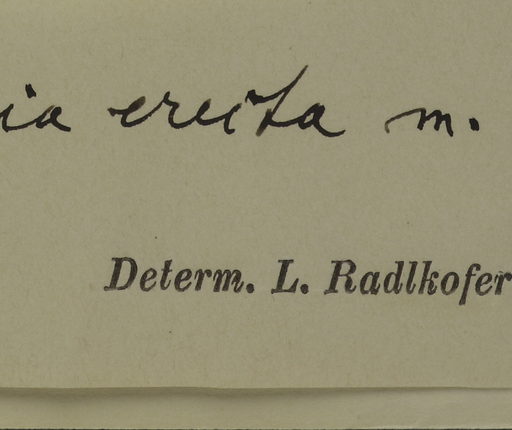 ia erecta m.
Determ. L. Radlkofer